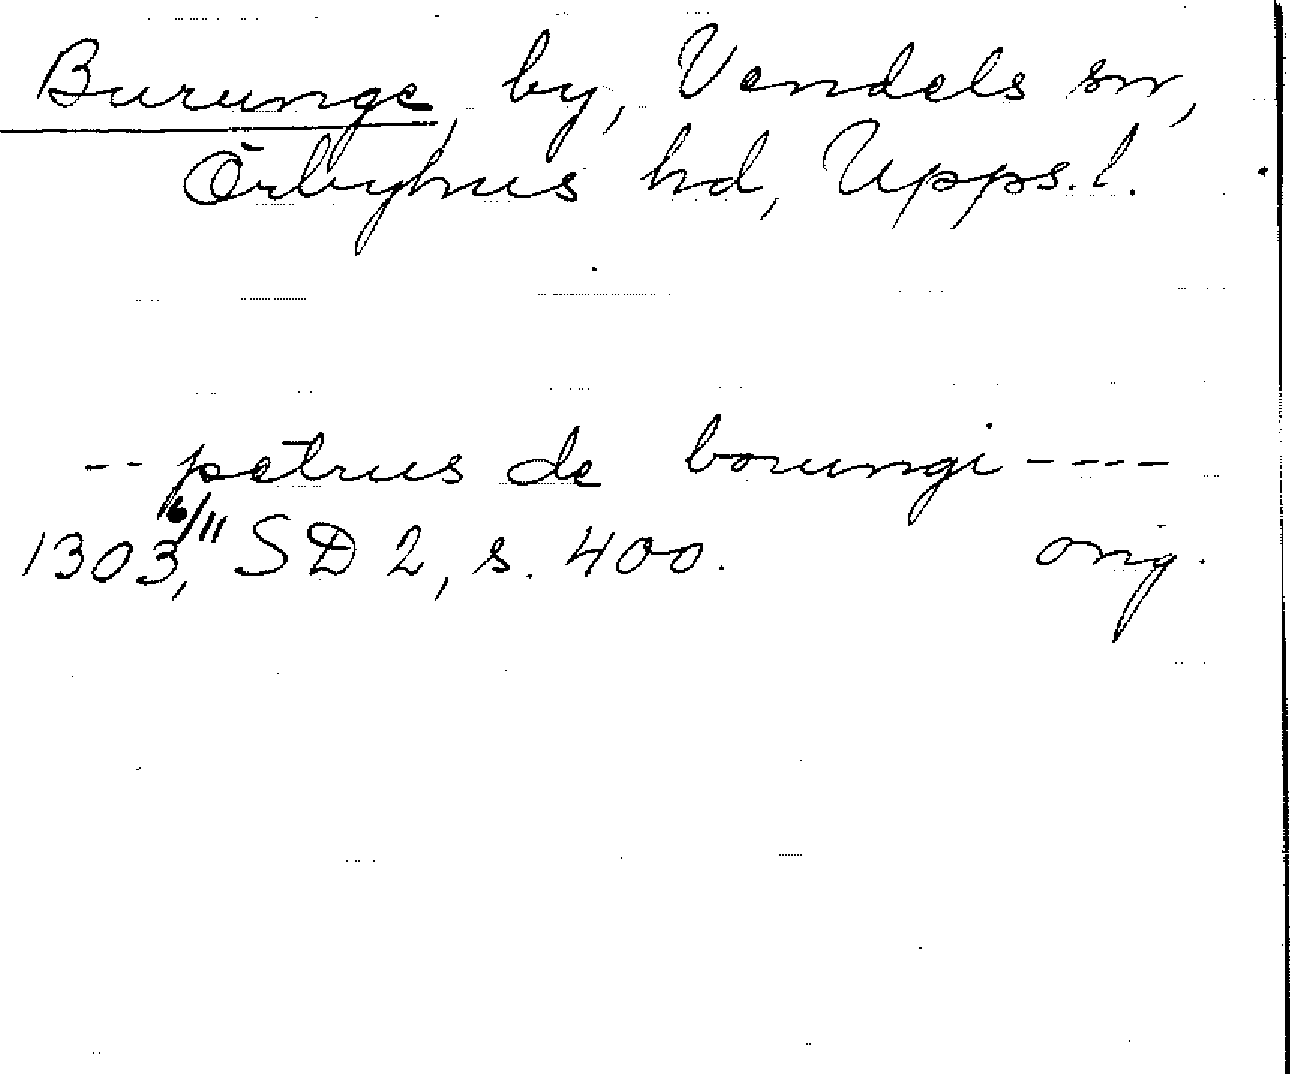 Burunge, by, Vendels sn,
Örbyhus hd, Upps. l.
-- petrus de borungi ----
1303 6/11, SD 2, s. 400. orig.